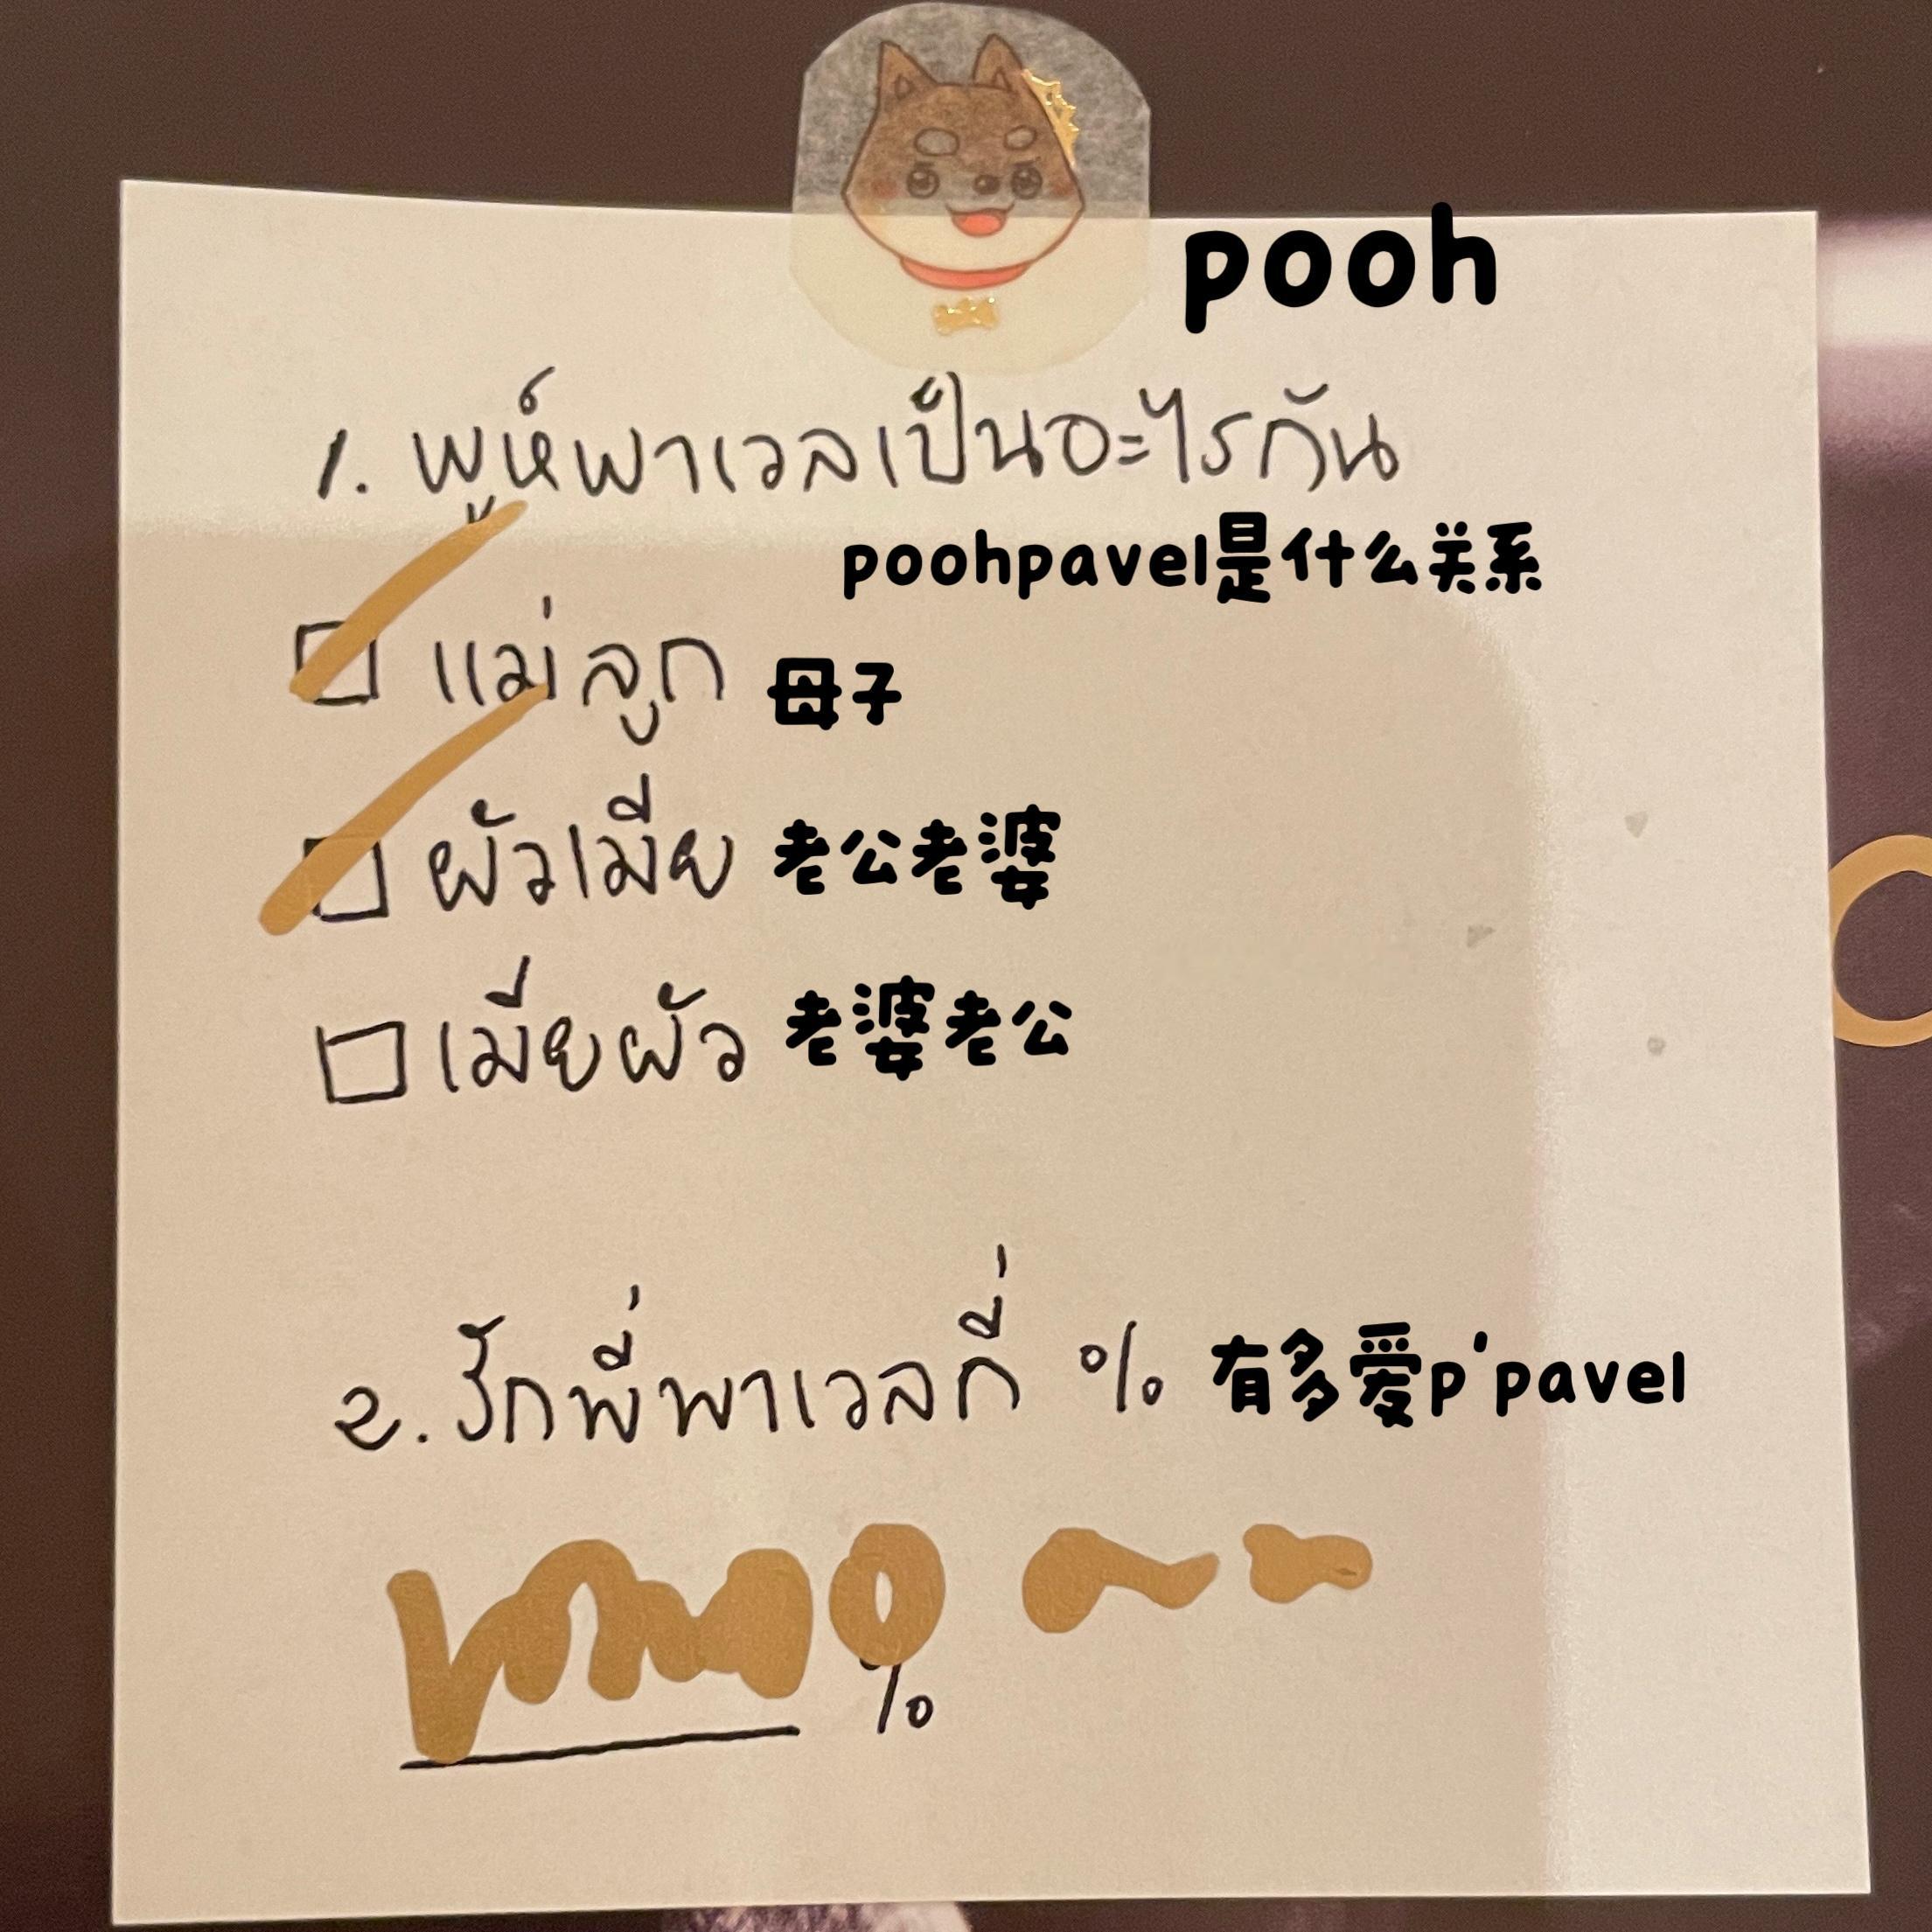 pooh
1. พูห์พาเวลเป็นอะไรกัน
poohpavel是什么关系
แม่ลูก 母子
ผัวเมีย 老公老婆
เมียผัว 老婆老公
2. รักพี่พาเวลกี่ % 有多爱p'pavel
%